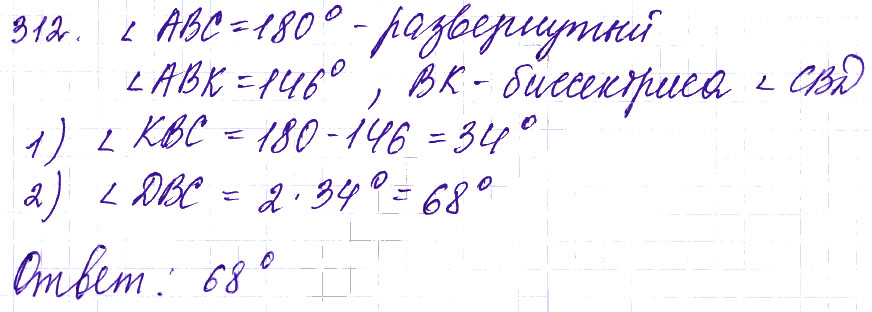 312. ∠ ABC = 180° - развернутый
∠ ABK = 146°, BK - биссектриса ∠ CBD
1) ∠ KBC = 180 - 146 = 34°
2) ∠ DBC = 2 · 34° = 68°
Ответ: 68°